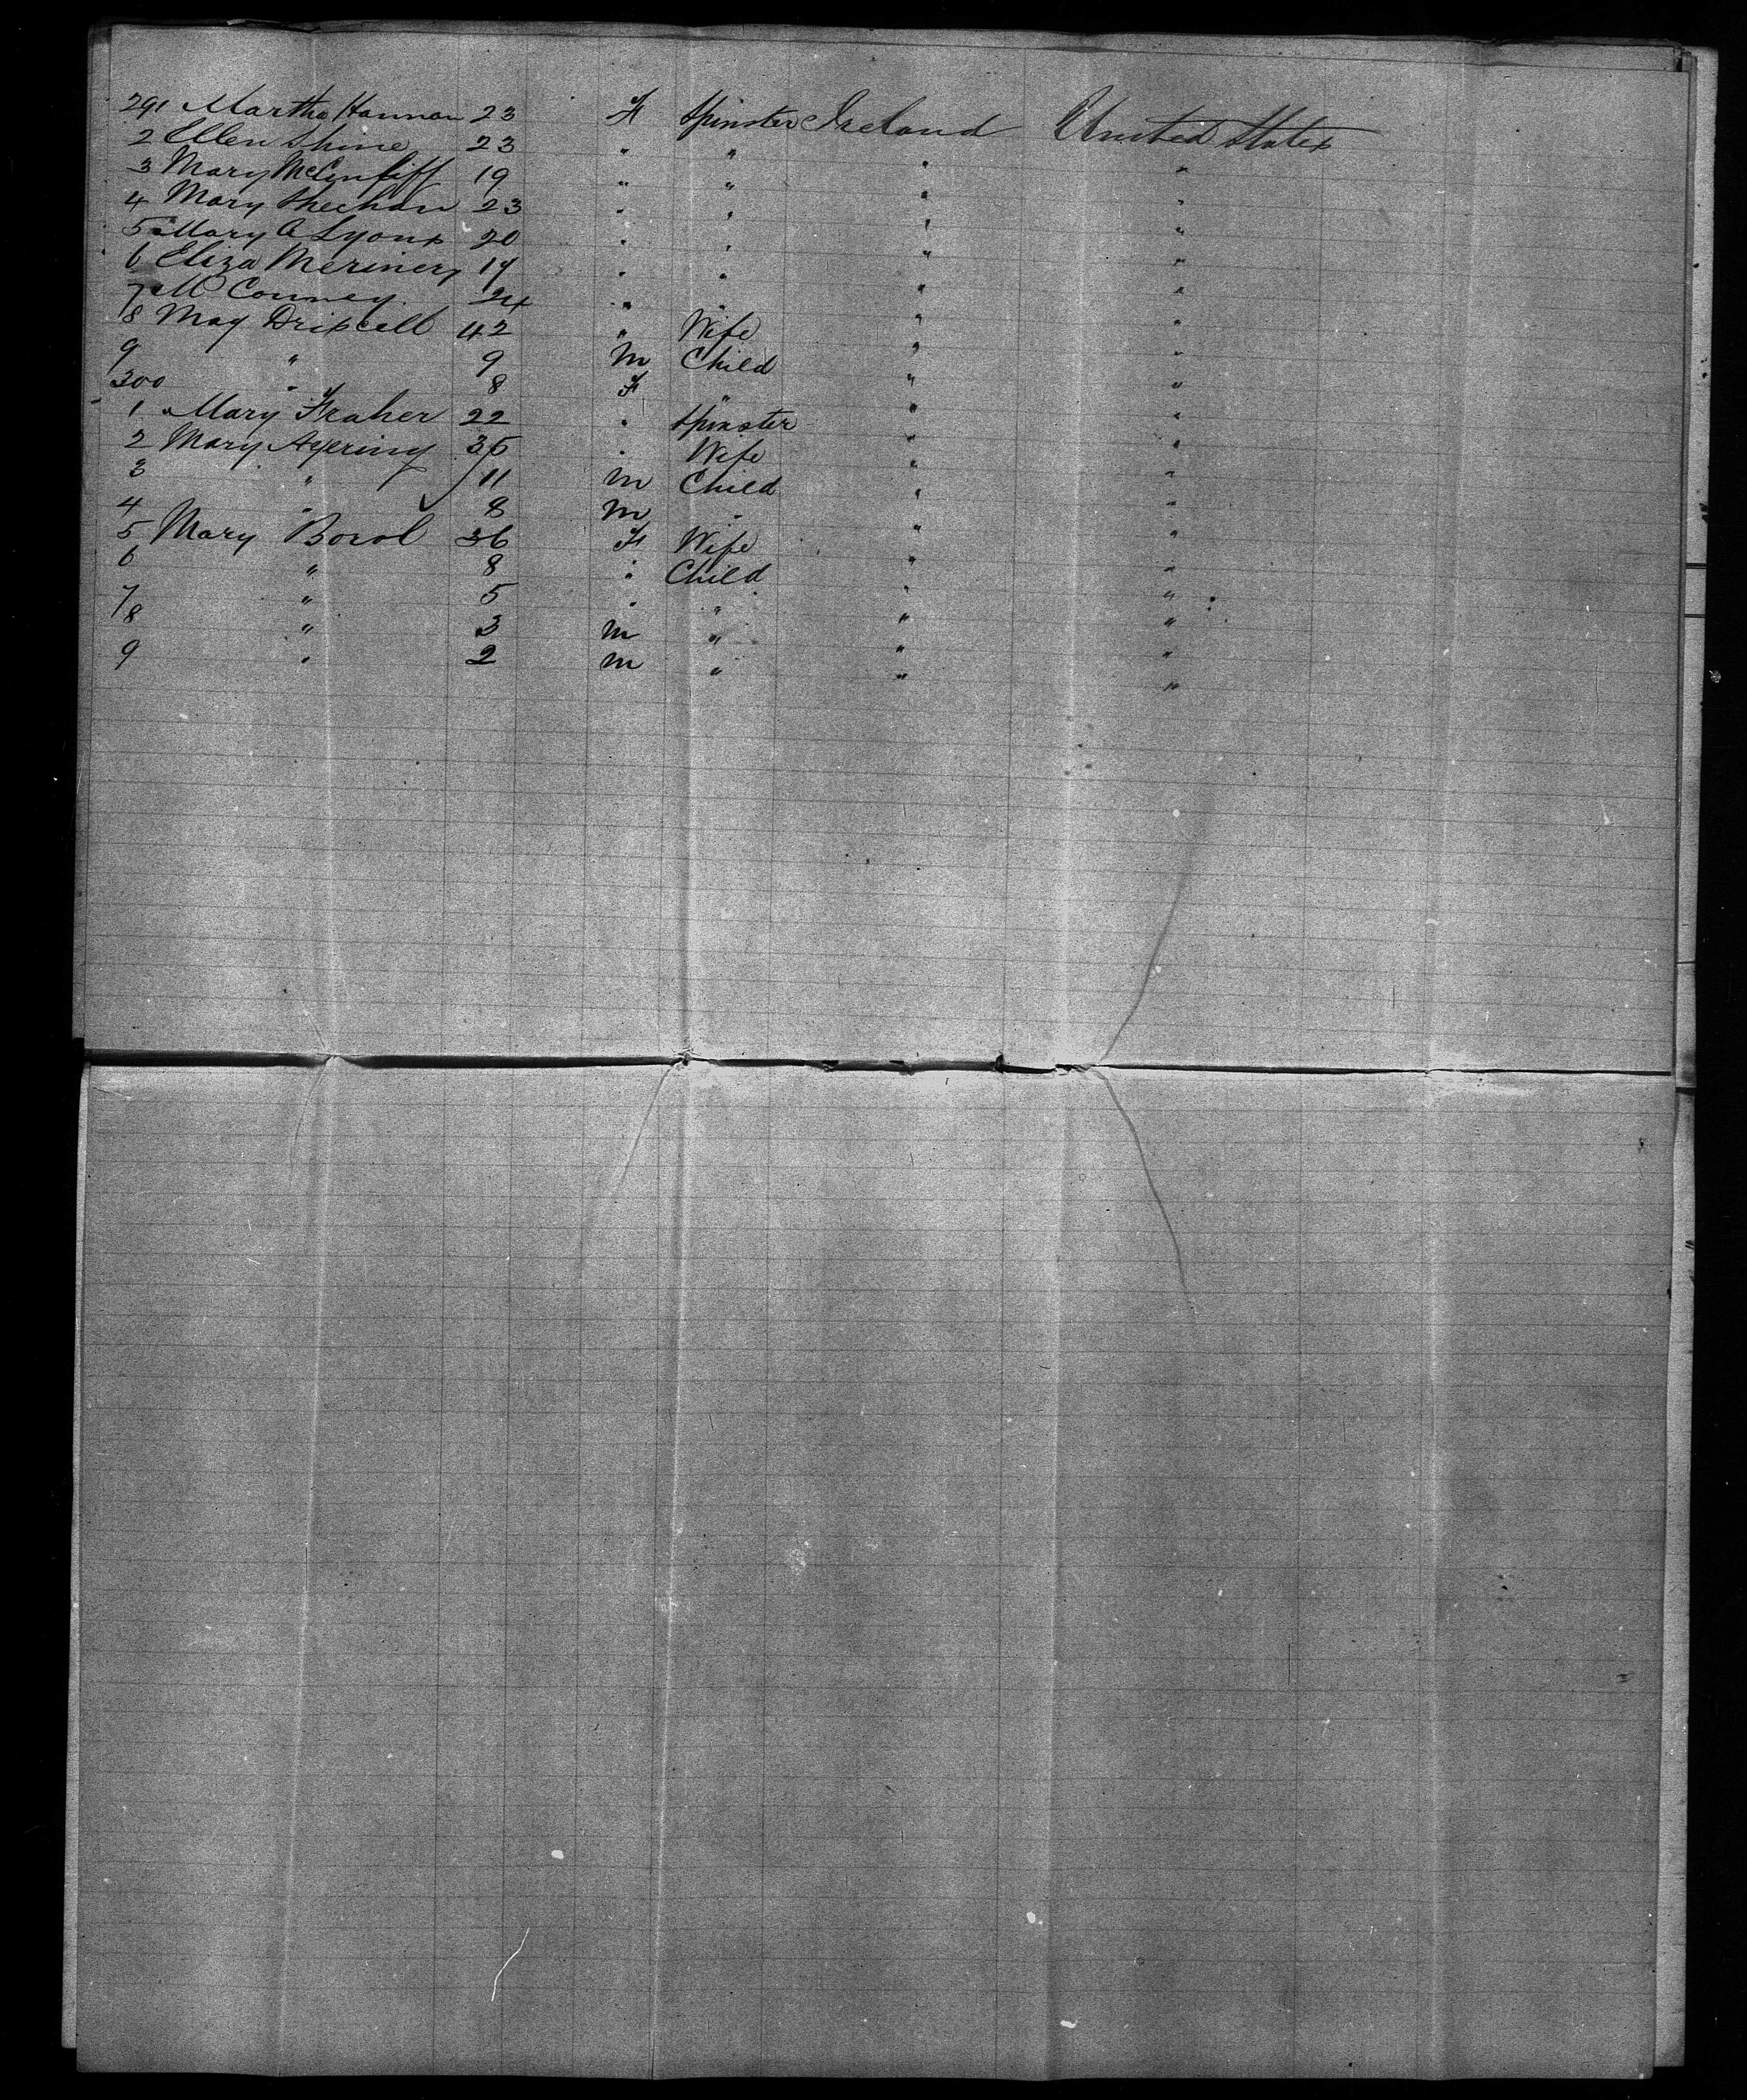 291 Martha Hannan 23 F Spinster Ireland United States
2 Ellen Shine 23 " " " "
3 Mary 19 " " " "
4 Mary Sheehan 23 " " " "
5 Mary A Lyons 20 " " " "
6 Eliza " " " "
7 M Conney 24 " " " "
8 May Driscell 42 " Wife " "
9 " 9 M Child " "
300 " 8 F " " "
1 Mary Fraher 22 " Spinster " "
2 Mary 35 " Wife " "
3 " 11 M Child " "
4 " 8 M " " "
5 Mary Borol 36 F Wife " "
6 " 8 " Child " "
7 " 5 " " " "
8 " 3 M " " "
9 " 2 M " " "